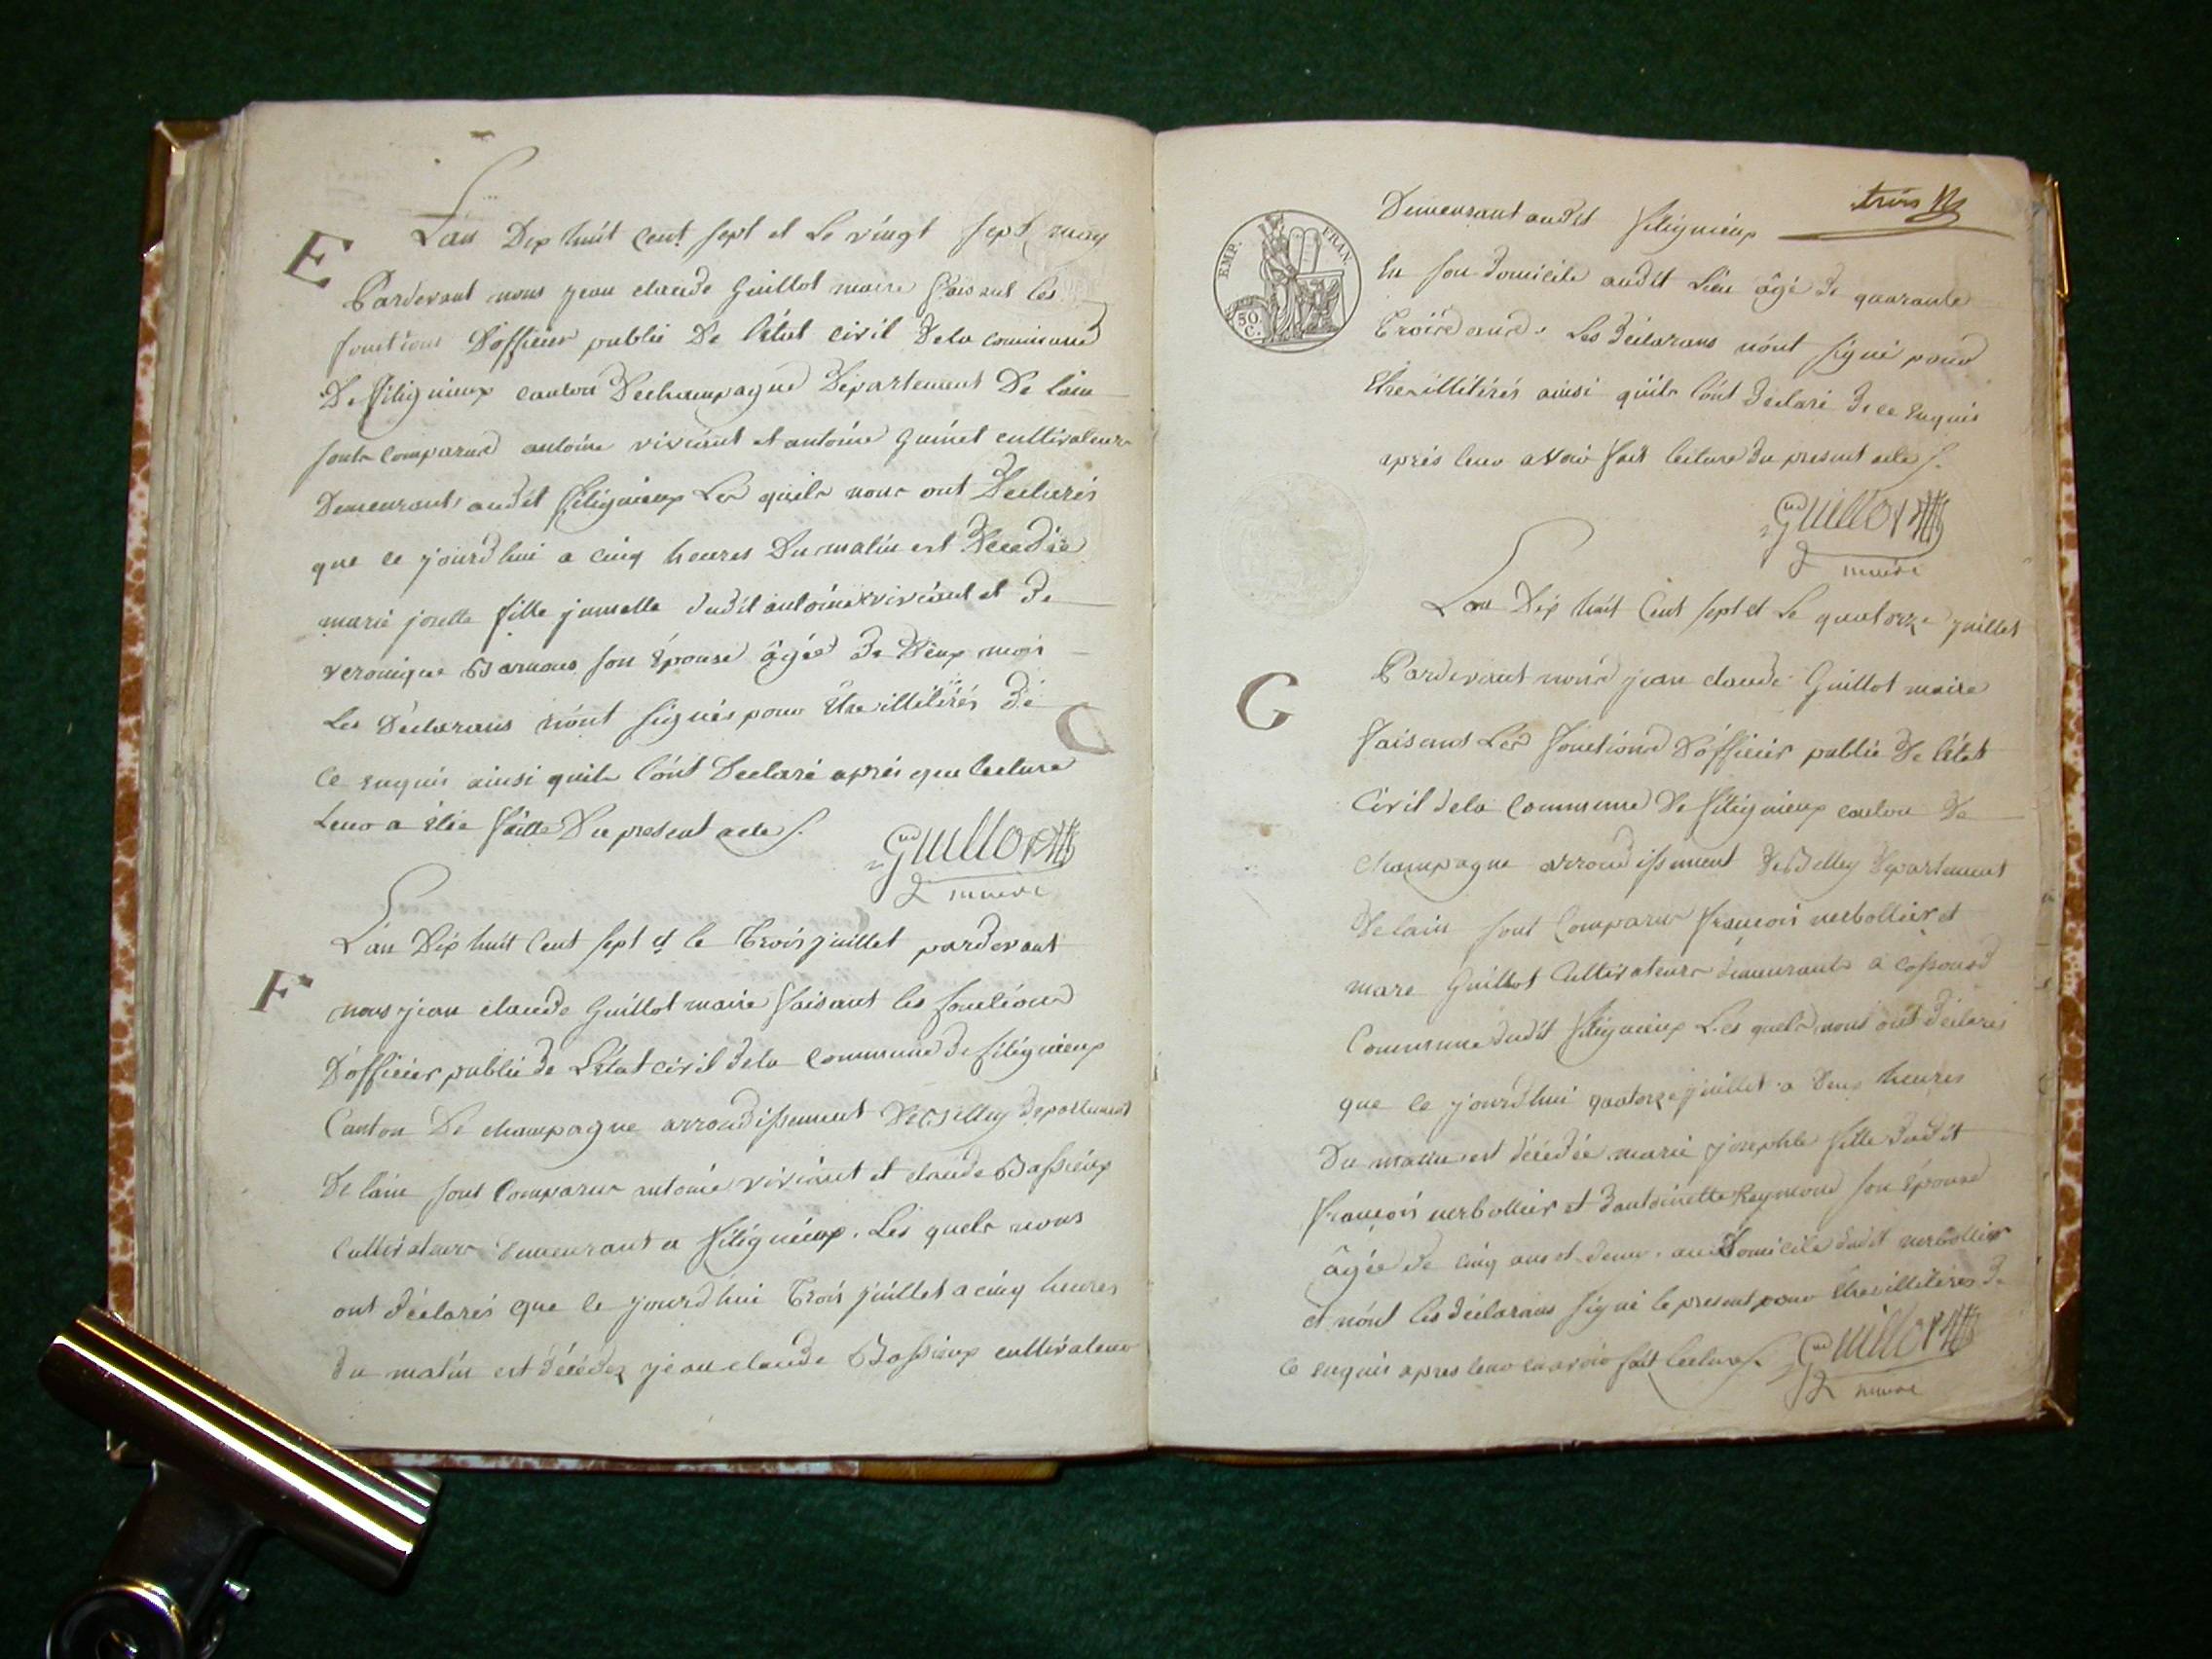 E
L'an Dix huit Cent sept et Le vingt sept may
Pardevant nous jean claude Guillot maire faisant les
fonctions D'officier public De l'état civil Dela commune
De Silignieux canton Dechampagne Département De lain
sont comparus antoine viviant et antoine Guinet cultivateurs
Demeurants audit Silignieux Les quils nous ont Déclarés
que ce jourd'hui a cinq heures Du matin est Décédée
marie josette fille jumelle dudit antoine viviant et de
veronique Barnous son épouse âgée De Deux mois
Les Déclarans n'ont signés pour Etre illitérés De
Ce enquis ainsi quils l'ont Déclaré après que lecture
Leur a étée faitte Du present acte
Guillot
maire
L'an Dix huit Cent sept et le Trois juillet pardevant
F
nous jean claude Guillot maire faisant les fonctions
D'officier public de L'état civil dela Commune de Silignieux
Canton De champagne arrondissement De Belley departement
De lain sont Comparus antoine viviant et claude Bassieux
Cultivateurs Demeurant a Silignieux. Les quels nous
ont déclarés que le jourd'hui Trois juillet a cinq heures
du matin est décédez jean claude Bassieux cultivateur
trois
Demeurant audit Silignieux
EMP. FRAN.
50 C.
En son domicile audit Lieu âgé de quarante
Trois ans. Les déclarans n'ont signé pour
Etre illitérés ainsi quils l'ont déclaré de ce Enquis
après leur avoir fait lecture du present acte
Guillot
maire
L'an Dix huit Cent sept et Le quatorze juillet
Pardevant nous jean claude Guillot maire
G
faisant Les fonctions D'officier public De l'état
Civil dela Commune De Silignieux canton De
champagne arrondissement De Belley Departement
De lain sont Comparus francois verbollier et
marc Guillot Cultivateurs demeurants a Cossonod
Commune dudit Silignieux Les quels nous ont déclarés
que ce jourd'hui quatorze juillet a Deux heures
Du matin est décédée marie josephte fille dudit
francois verbollier et d'antoinette Reymond son épouse
âgée De cinq ans et demi. au Domicile dudit verbollier
et n'ont les déclarans signé le present pour Etre illitérés de
Ce enquis apres leur en avoir fait lecture
Guillot
maire